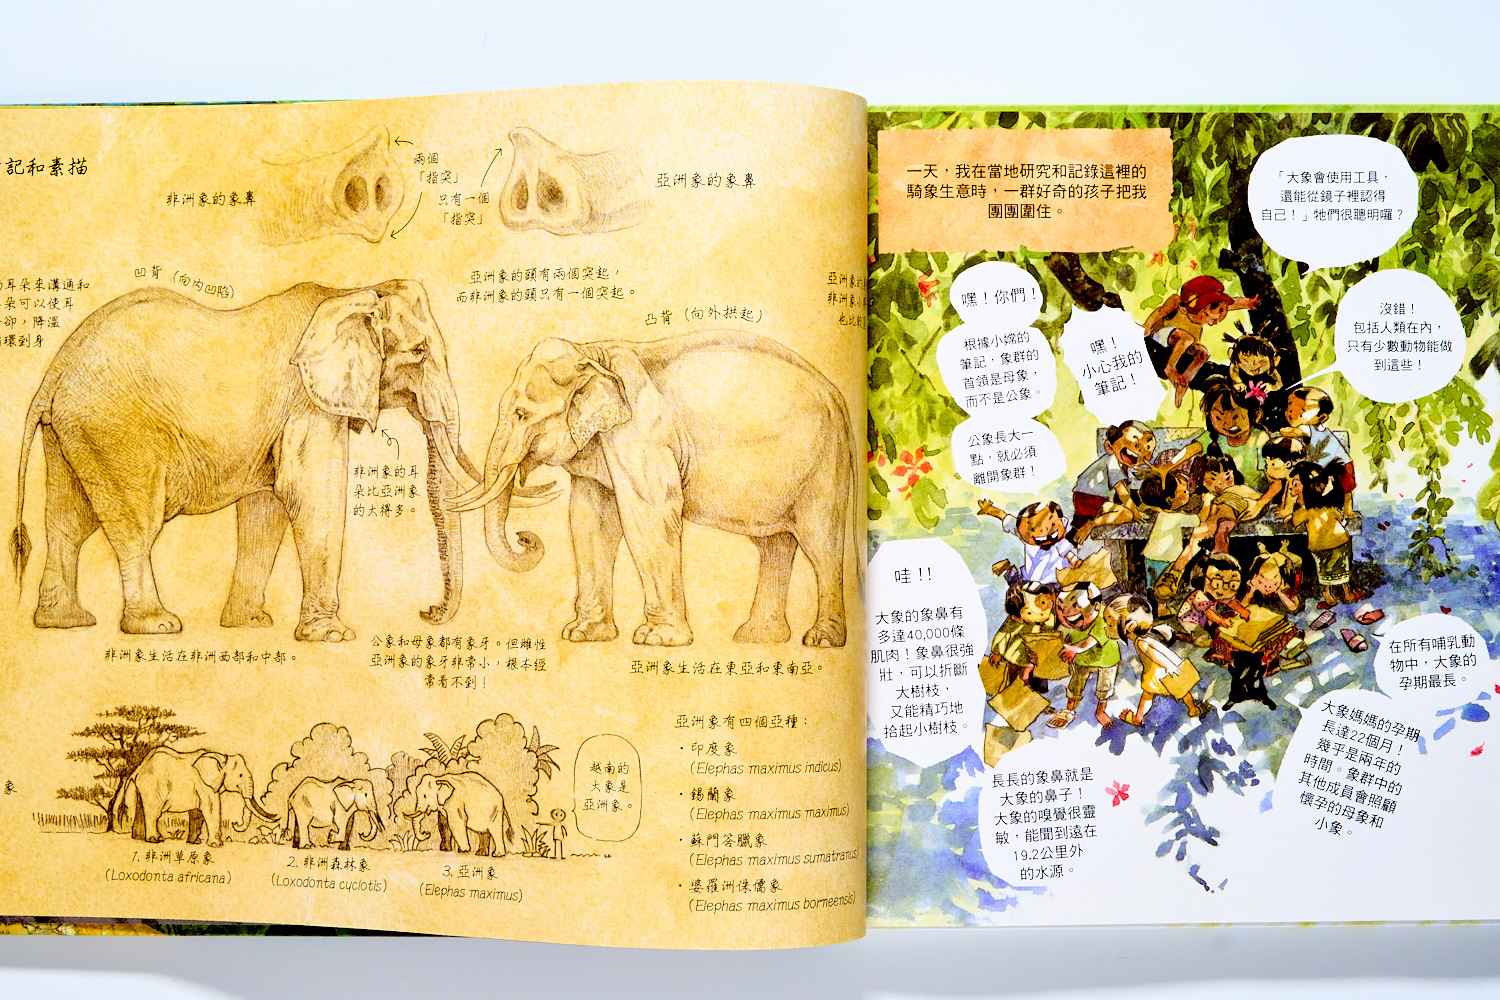 記和素描
非洲象的象鼻
兩個
「指突」
只有一個
「指突」
亞洲象的象鼻
耳朵來溝通和
朵可以使耳
卻，降溫
循環到身
凹背（向內凹陷）
亞洲象的頭有兩個突起，
而非洲象的頭只有一個突起。
凸背（向外拱起）
亞洲象的
非洲象
也比
非洲象的耳
朵比亞洲象
的大得多。
非洲象生活在非洲西部和中部。
公象和母象都有象牙。但雌性
亞洲象的象牙非常小，根本經
常看不到！
亞洲象生活在東亞和東南亞。
象
1. 非洲草原象
(Loxodonta africana)
2. 非洲森林象
(Loxodonta cyclotis)
3. 亞洲象
(Elephas maximus)
越南的
大象是
亞洲象。
亞洲象有四個亞種：
·印度象
(Elephas maximus indicus)
·錫蘭象
(Elephas maximus maximus)
·蘇門答臘象
(Elephas maximus sumatranus)
·婆羅洲侏儒象
(Elephas maximus borneensis)
一天，我在當地研究和記錄這裡的
騎象生意時，一群好奇的孩子把我
團團圍住。
「大象會使用工具，
還能從鏡子裡認得
自己！」牠們很聰明囉？
沒錯！
包括人類在內，
只有少數動物能做
到這些！
嘿！你們！
根據小嫦的
筆記，象群的
首領是母象，
而不是公象。
公象長大一
點，就必須
離開象群！
嘿！
小心我的
筆記！
哇！！
大象的象鼻有
多達40,000條
肌肉！象鼻很強
壯，可以折斷
大樹枝，
又能精巧地
拾起小樹枝。
長長的象鼻就是
大象的鼻子！
大象的嗅覺很靈
敏，能聞到遠在
19.2公里外
的水源。
在所有哺乳動
物中，大象的
孕期最長。
大象媽媽的孕期
長達22個月！
幾乎是兩年的
時間。象群中的
其他成員會照顧
懷孕的母象和
小象。